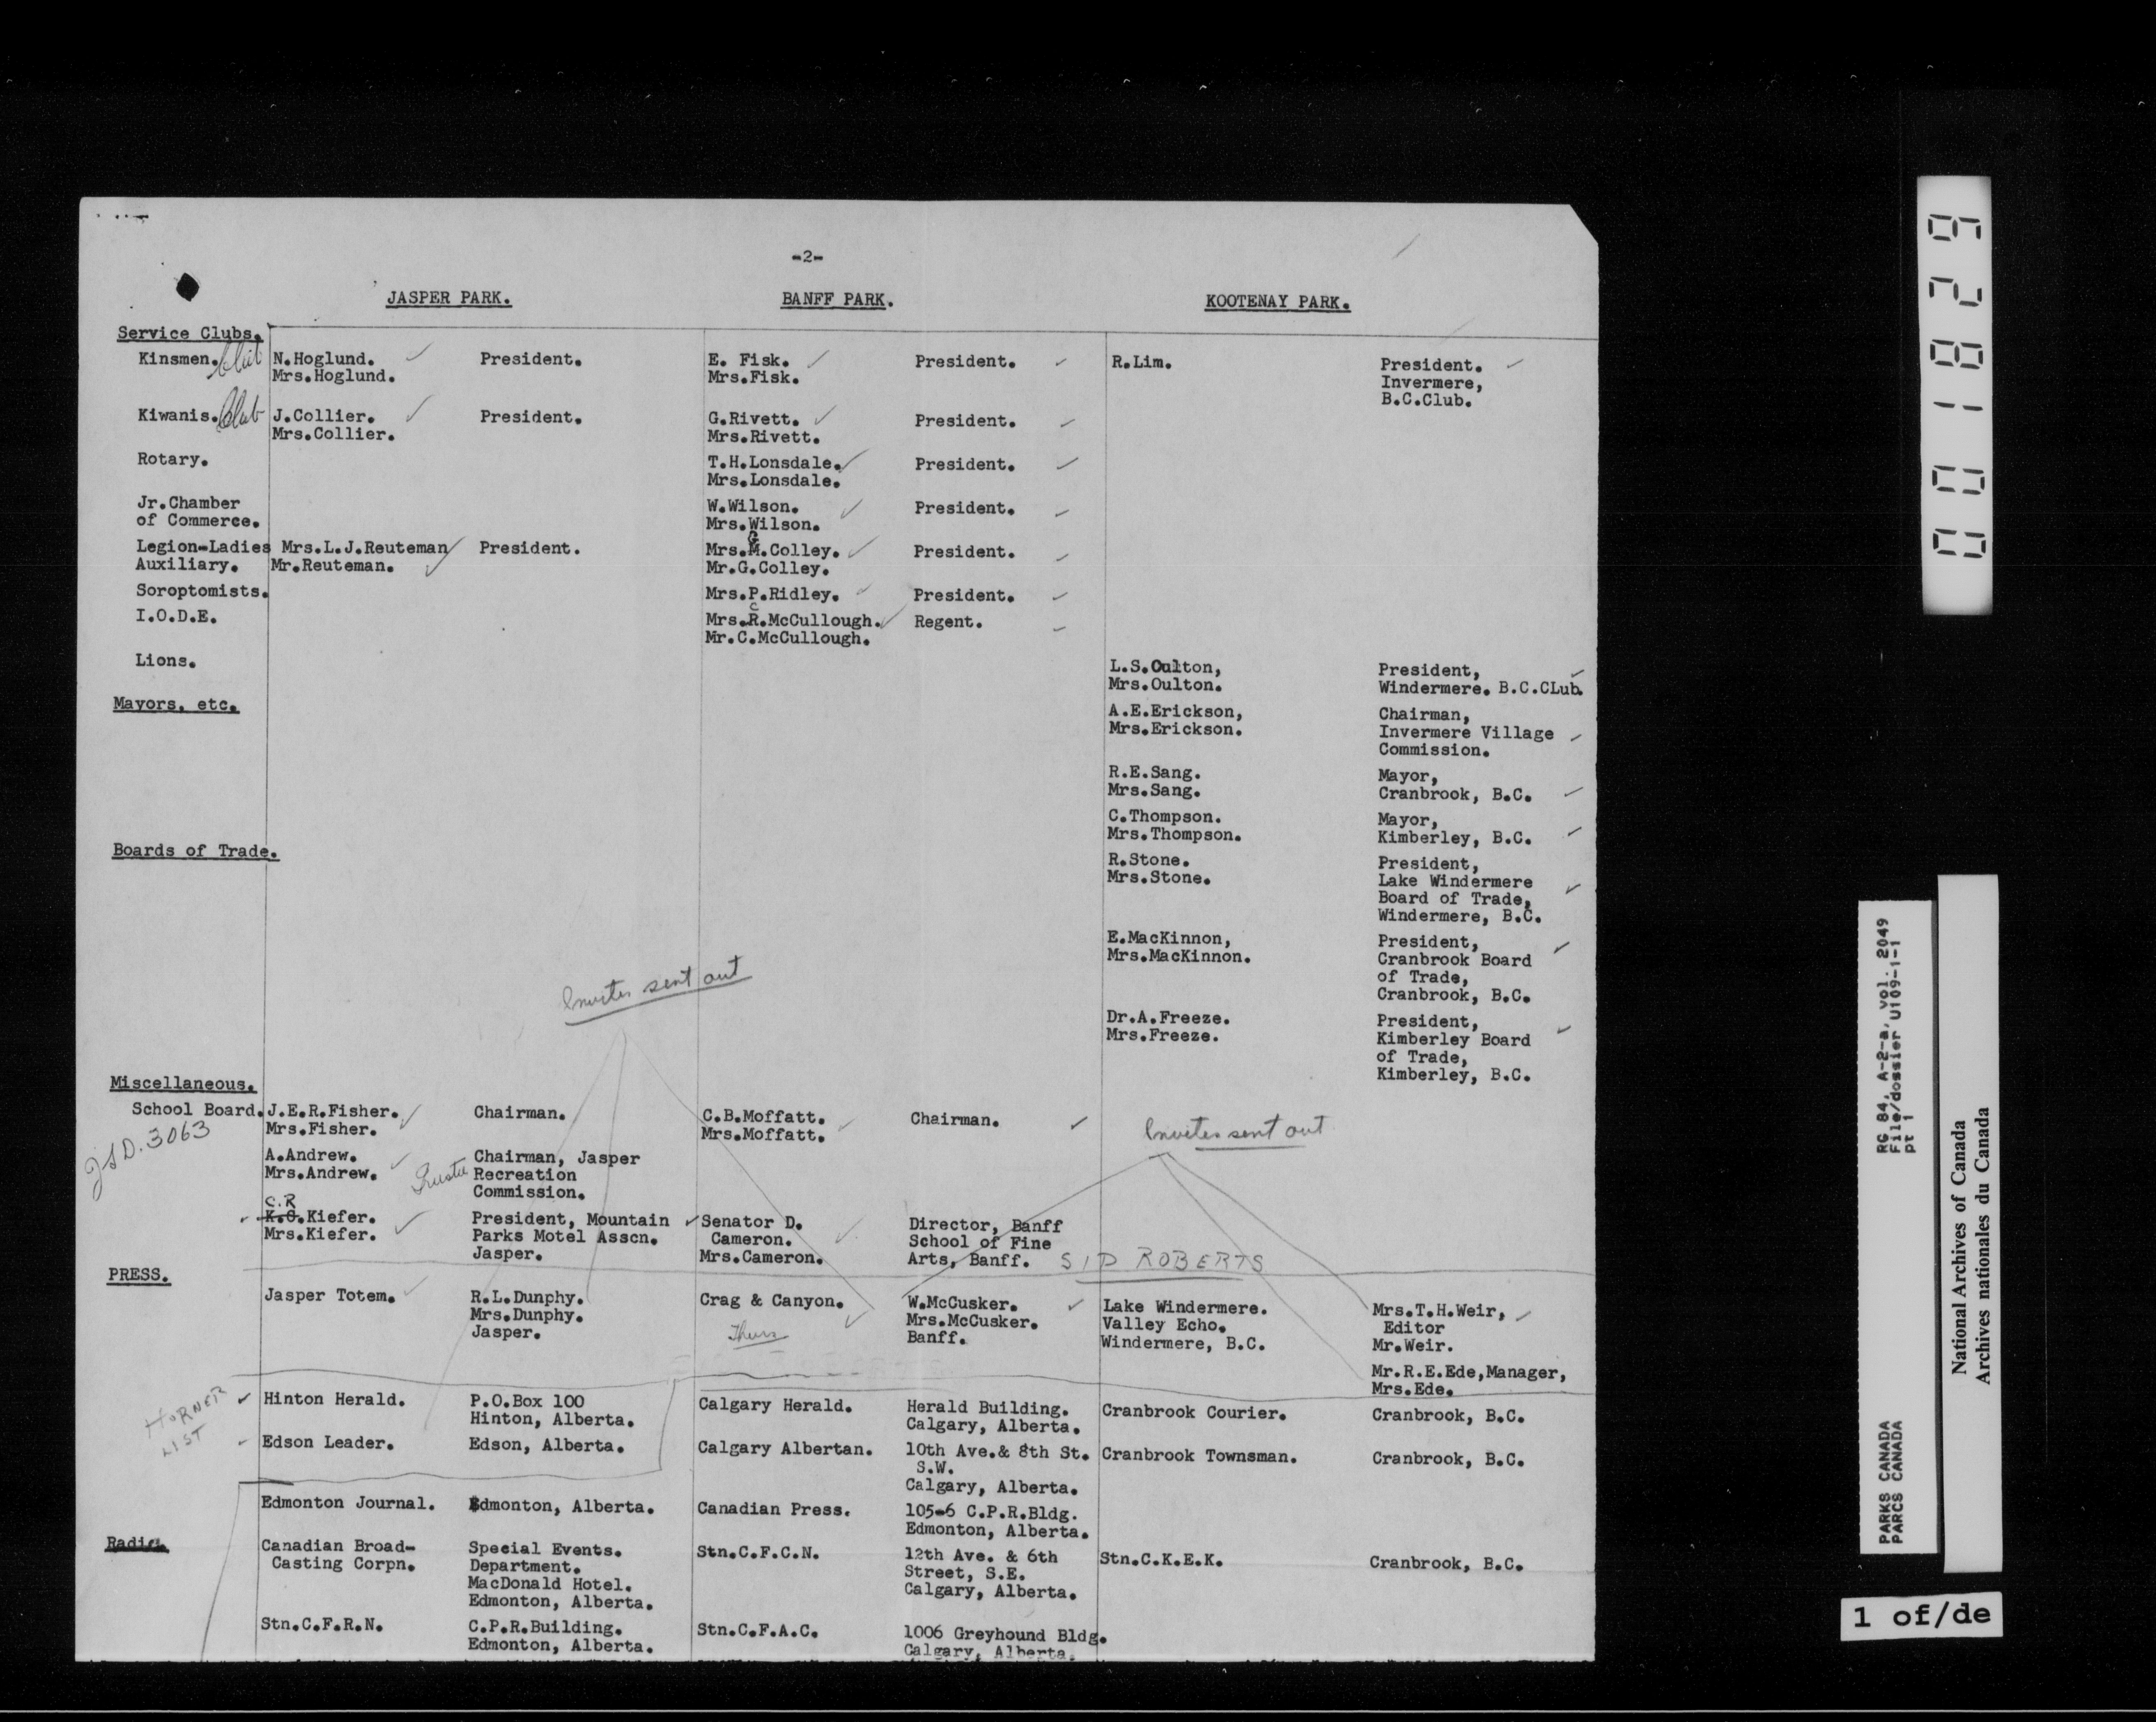 -2-
JASPER PARK. BANFF PARK. KOOTENAY PARK.
Service Clubs.
Kinsmen. Club N.Hoglund. President. E. Fisk. President. R.Lim. President.
Mrs.Hoglund. Mrs.Fisk. Invermere,
B.C.Club.
Kiwanis. Club J.Collier. President. G.Rivett. President.
Mrs.Collier. Mrs.Rivett.
Rotary. T.H.Lonsdale. President.
Mrs.Lonsdale.
Jr.Chamber W.Wilson. President.
of Commerce. Mrs.Wilson.
G
Legion-Ladies Mrs.L.J.Reuteman President. Mrs.M.Colley. President.
Auxiliary. Mr.Reuteman. Mr.G.Colley.
Soroptomists. Mrs.P.Ridley. President.
C
I.O.D.E. Mrs.R.McCullough. Regent.
Mr.C.McCullough.
Lions. L.S.Oulton, President,
Mrs.Oulton. Windermere. B.C.CLub.
Mayors, etc. A.E.Erickson, Chairman,
Mrs.Erickson. Invermere Village
Commission.
R.E.Sang. Mayor,
Mrs.Sang. Cranbrook, B.C.
C.Thompson. Mayor,
Mrs.Thompson. Kimberley, B.C.
Boards of Trade. R.Stone. President,
Mrs.Stone. Lake Windermere
Board of Trade,
Windermere, B.C.
E.MacKinnon, President,
Mrs.MacKinnon. Cranbrook Board
of Trade,
Cranbrook, B.C.
Invites sent out
Dr.A.Freeze. President,
Mrs.Freeze. Kimberley Board
of Trade,
Kimberley, B.C.
Miscellaneous.
School Board. J.E.R.Fisher. Chairman. C.B.Moffatt. Chairman.
Mrs.Fisher. Mrs.Moffatt.
Invites sent out
JSD.3063
A.Andrew. Chairman, Jasper
Mrs.Andrew. Recreation
Commission.
C.R
K.O.Kiefer. President, Mountain Senator D. Director, Banff
Mrs.Kiefer. Parks Motel Asscn. Cameron. School of Fine
Jasper. Mrs.Cameron. Arts, Banff. SID ROBERTS
PRESS.
Jasper Totem. R.L.Dunphy. Crag & Canyon. W.McCusker. Lake Windermere. Mrs.T.H.Weir,
Mrs.Dunphy. Mrs.McCusker. Valley Echo. Editor
Jasper. Thurs Banff. Windermere, B.C. Mr.Weir.
Mr.R.E.Ede,Manager,
Mrs.Ede.
HORNER LIST
Hinton Herald. P.O.Box 100 Calgary Herald. Herald Building. Cranbrook Courier. Cranbrook, B.C.
Hinton, Alberta. Calgary, Alberta.
Edson Leader. Edson, Alberta. Calgary Albertan. 10th Ave.& 8th St. Cranbrook Townsman. Cranbrook, B.C.
S.W.
Calgary, Alberta.
Edmonton Journal. Edmonton, Alberta. Canadian Press. 105-6 C.P.R.Bldg.
Edmonton, Alberta.
Radio. Canadian Broad- Special Events. Stn.C.F.C.N. 12th Ave. & 6th Stn.C.K.E.K. Cranbrook, B.C.
Casting Corpn. Department. Street, S.E.
MacDonald Hotel. Calgary, Alberta.
Edmonton, Alberta.
Stn.C.F.R.N. C.P.R.Building. Stn.C.F.A.C. 1006 Greyhound Bldg.
Edmonton, Alberta. Calgary, Alberta.
001829
RG 84, A-2-a, vol. 2049
File/dossier U109-1-1
pt 1
PARKS CANADA
PARCS CANADA
National Archives of Canada
Archives nationales du Canada
1 of/de